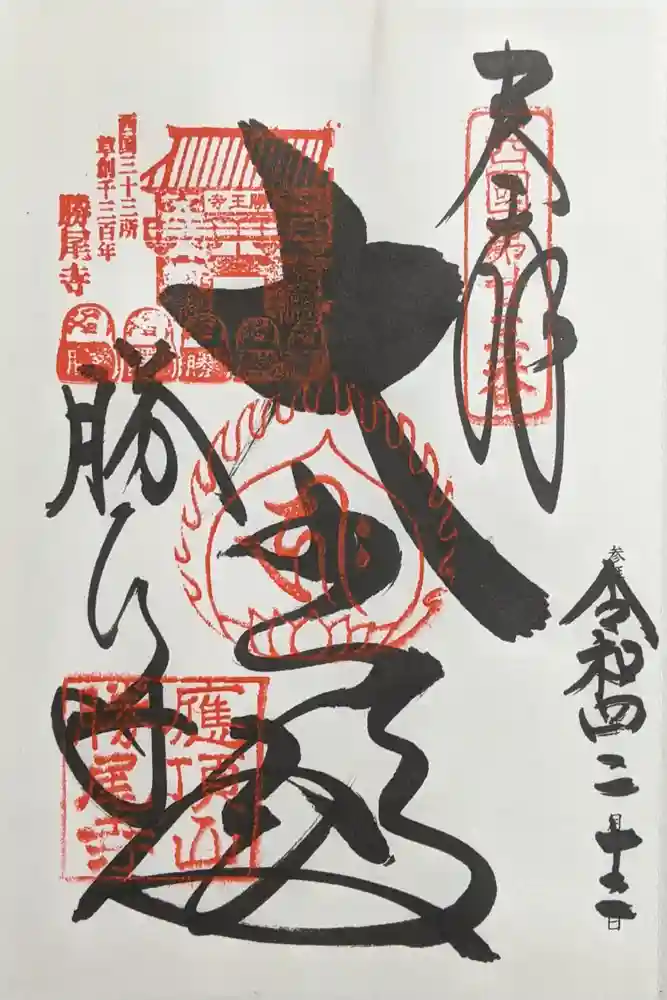 奉拝
西國第廿三番
大悲殿
勝尾寺
西国三十三所
草創千三百年
勝尾寺
寺王勝
勝
應頂山
勝尾寺
令和四二月十二日